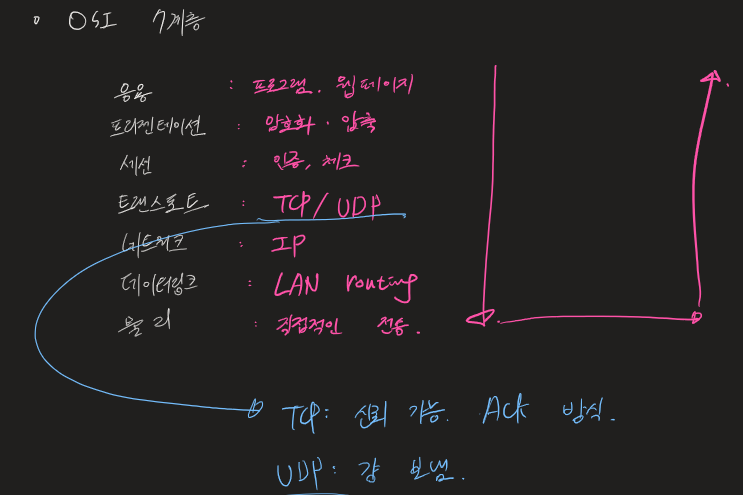 • OSI 7계층
응용 : 프로그램. 웹페이지
프리젠테이션 : 암호화 · 압축
세션 : 인증, 체크
트랜스포트 : TCP / UDP
네트워크 : IP
데이터링크 : LAN routing
물리 : 직접적인 전송.
TCP: 신뢰 가능. ACK 방식.
UDP: 걍 보냄.